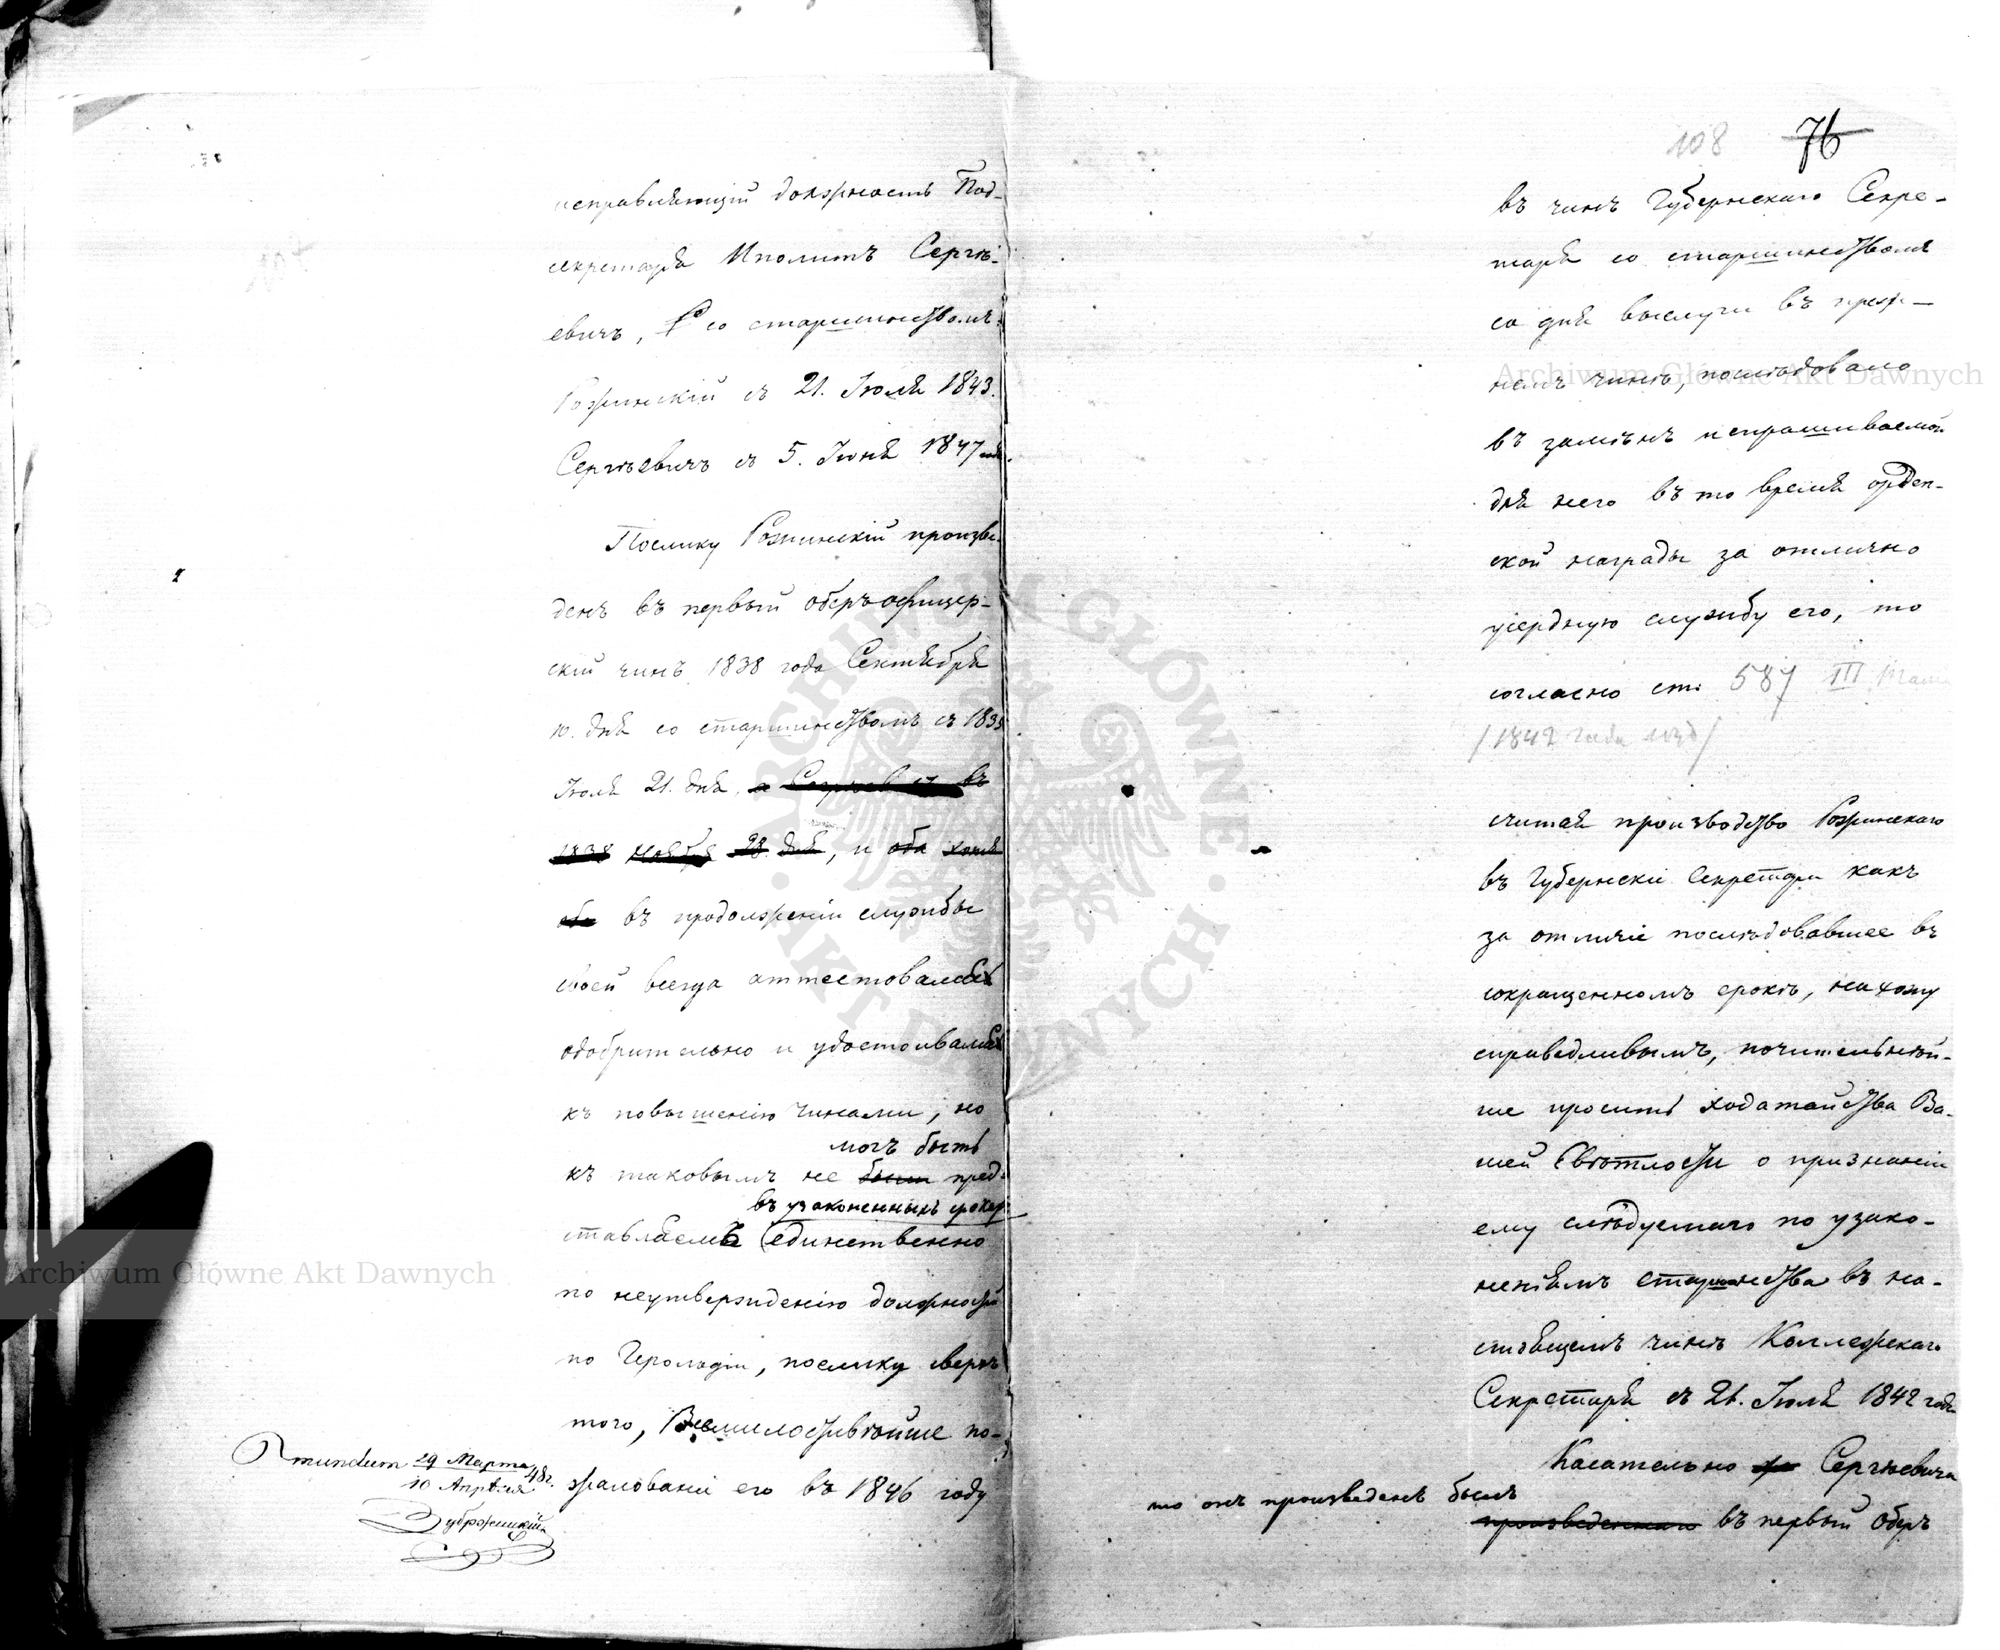 исправляющій должность Под-
секретаря Иполитъ Сергѣ-
евичъ, со старшинствомъ:
Рожинскій съ 21. Іюля 1843.
Сергѣевичъ съ 5. Іюня 1847 года.
Поелику Рожинскій произве-
денъ въ первый оберъофицер-
скій чинъ 1838 года Сентября
10. дня со старшинствомъ съ 183
Іюля 21. дня, а въ
1838 Ноября 28 дня, и оба хотя
оба въ продолженіи службы
своей всегда аттестовался
одобрительно и удостоивался
къ повышенію чинами, но
могъ быть
къ таковымъ не былъ пред-
въ узаконенныхъ срокахъ
ставляемъ единственно
по неутвержденію должностей
по Герольдіи, поелику сверхъ
того, Всемилостивѣйше по-
жалованіи его въ 1846 году
mundum 29 Марта
10 Апрѣля 48 г.
108 76
въ чинъ Губернскаго Секре-
таря со старшинствомъ
со дня выслуги въ преж-
немъ чинѣ, послѣдовало
въ замѣнъ испрашиваемой
для него въ то время орден-
ской награды за отлично
усердную службу его, то
согласно ст: 587 III Тома
/1842 года изд/
считая производство Рожинскаго
въ Губернскіе Секретари какъ
за отличіе послѣдовавшее въ
сокращенномъ срокѣ, нахожу
справедливымъ, почтительнѣй-
ше просить ходатайства Ва-
шей Свѣтлости о признаніи
ему слѣдуемаго по узако-
неніямъ старшинства въ на-
стоящемъ чинѣ Коллежскаго
Секретаря съ 21. Іюля 1842 года
Касательно Сергѣевича
то онъ произведенъ былъ
произведеннаго въ первый Оберъ
Archiwum Główne Akt Dawnych
Archiwum Główne Akt Dawnych
ARCHIWUM GŁÓWNE · AKT DAWNYCH ·